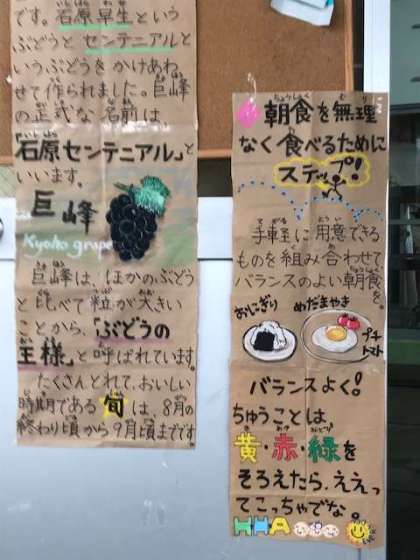 です。石原早生という
ぶどうと センテニアルと
いうぶどうを かけあわ
せて作られました。巨峰
の正式な 名前は、
「石原センテニアル」と
いいます。
巨峰
Kyoho grape
巨峰は、ほかのぶどう
と比べて粒が大きい
ことから、「ぶどうの
王様」と呼ばれています。
たくさんとれて、おいしい
時期である 旬は、8月の
終わり頃から9月頃までです
朝食を無理
なく食べるために
ステップ!
手軽に用意できる
ものを組み合わせて
バランスのよい朝食
を。
おにぎり
めだまやき
プチ
トマト
バランスよく!
ちゅうことは、
黄・赤・緑を
そろえたら、ええっ
てこっちゃでな。